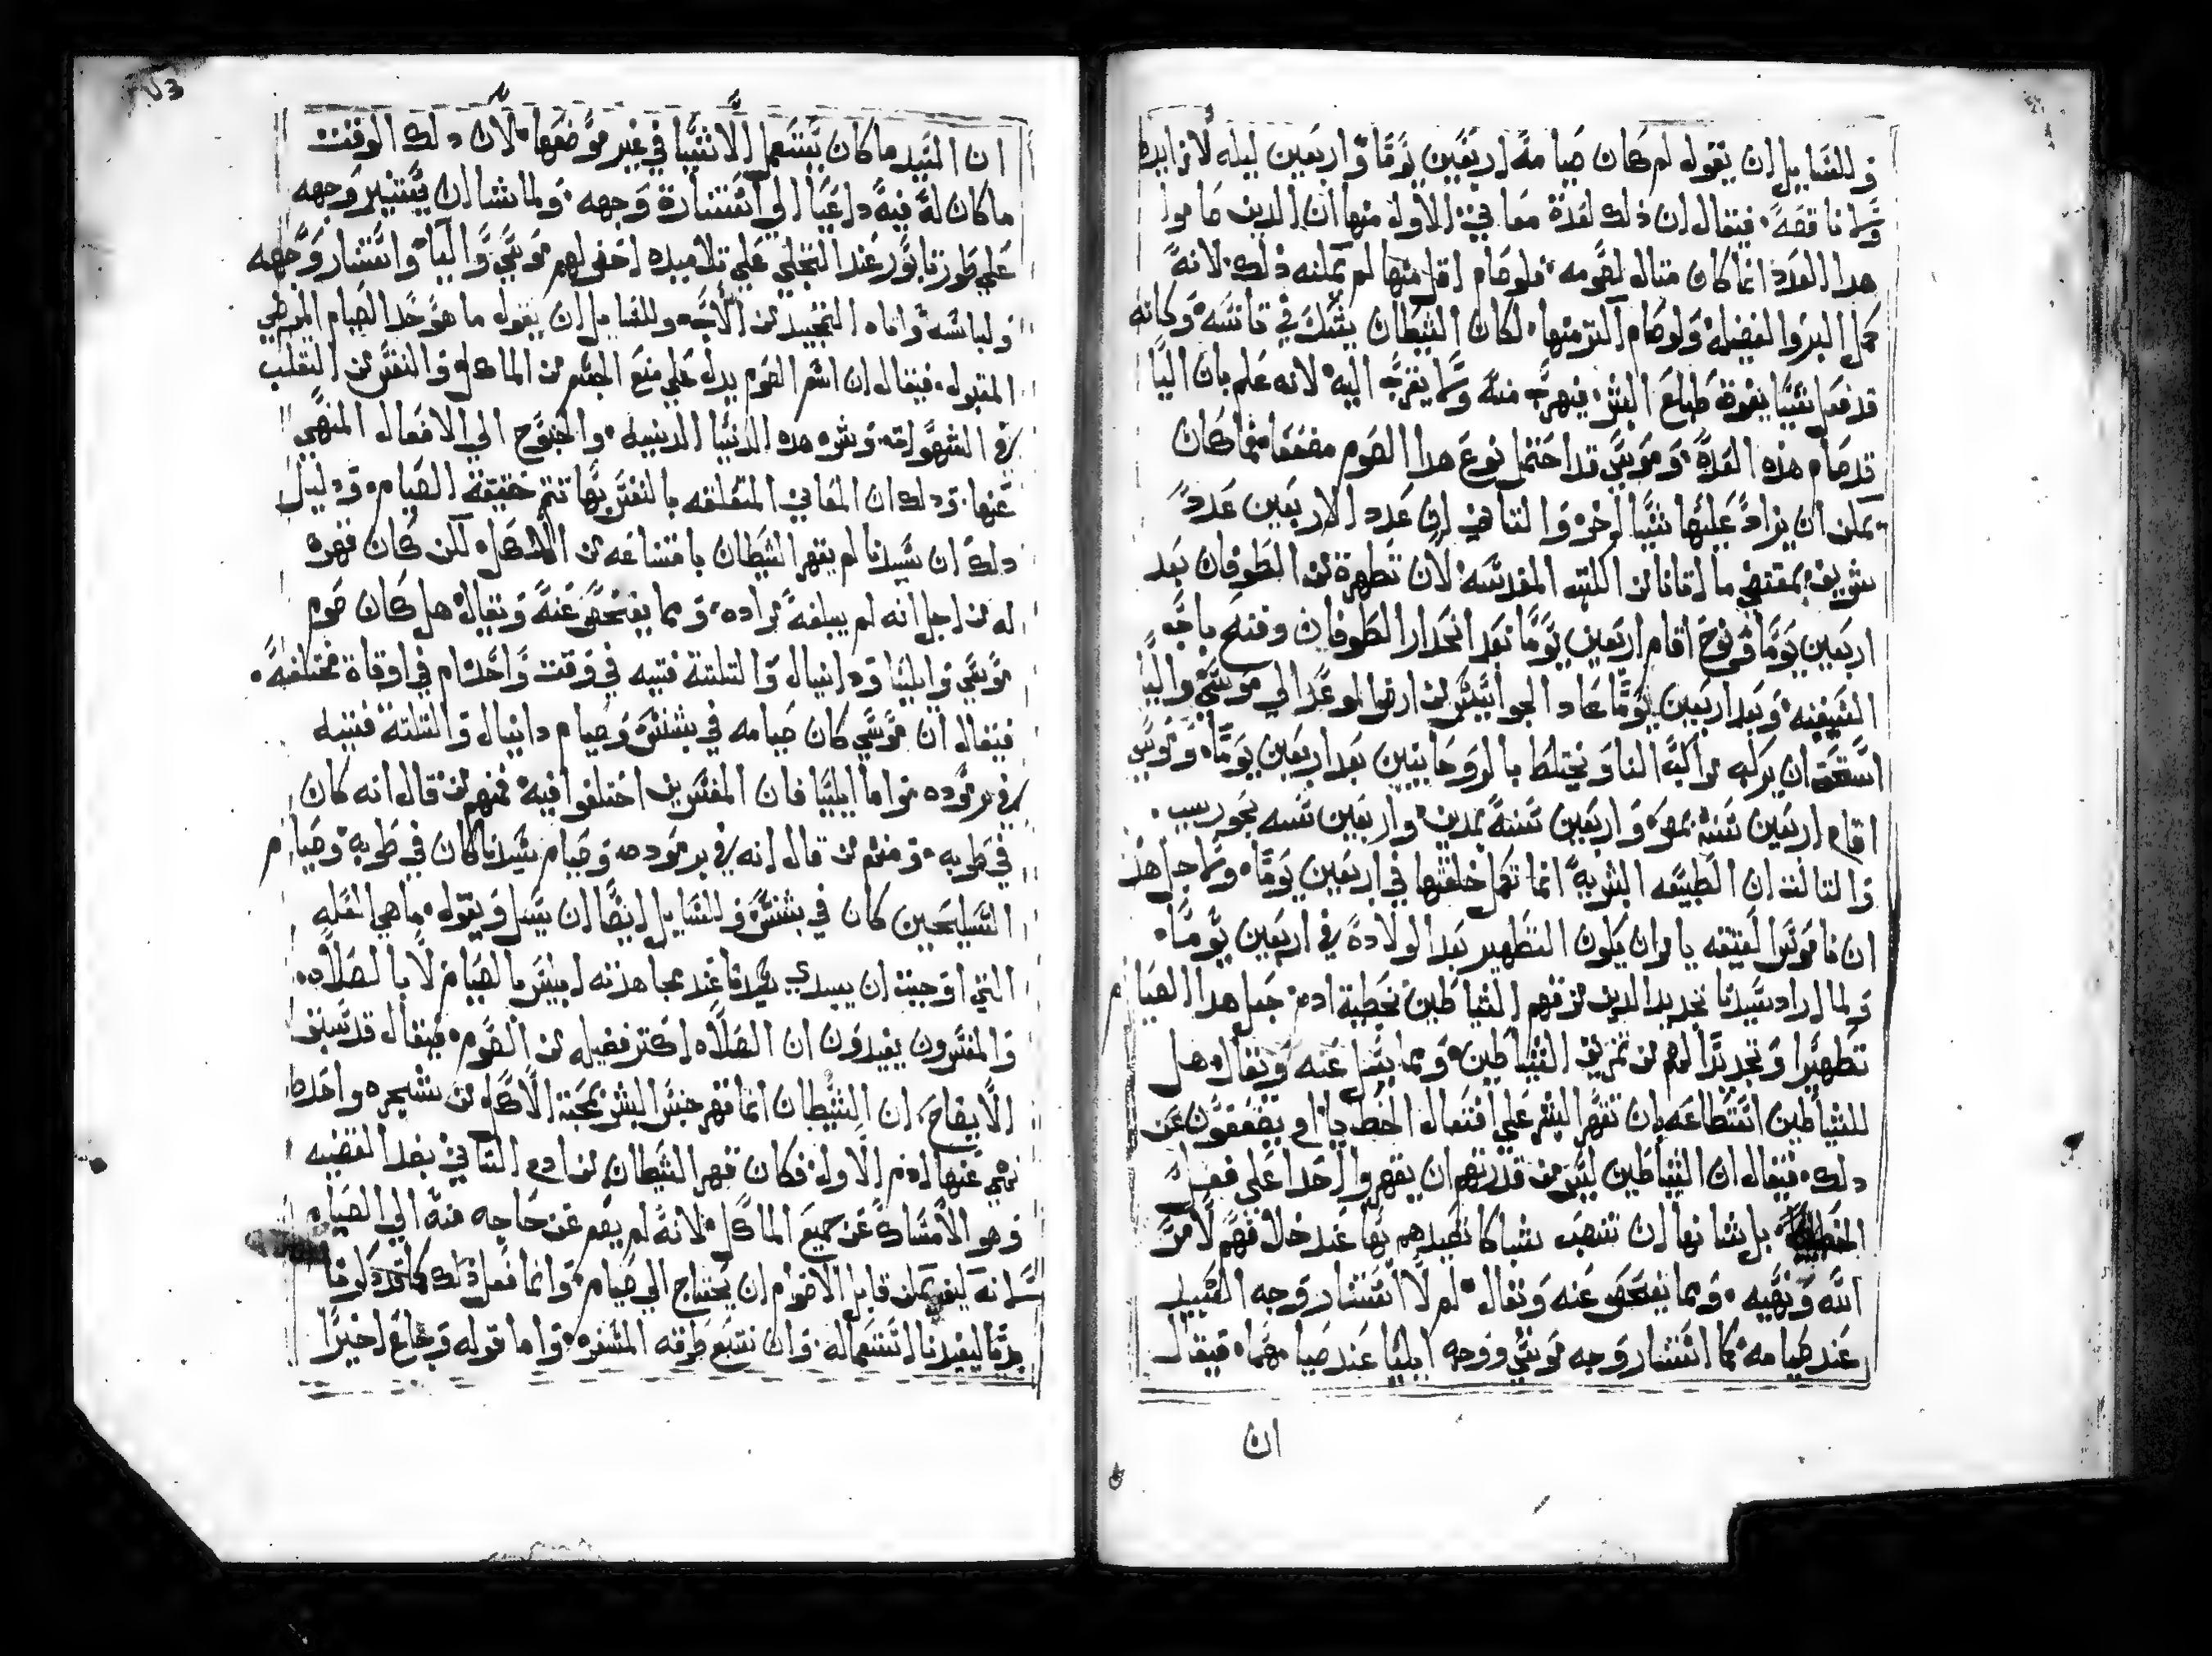 وللقايل ان يقول لم كان صيامه اربعين يومًا واربعين ليله لا زايده
ولا ناقصه فيقال ان ذلك لعدة معاني الاول منها ان الدين صاموا
هدا العدد انما كان متال لصومه فلو صام اقل منها لم يمكنه ذلك لانه
كمل البر والفضيله ولو صام اكتر منها لكان الشيطان يشك في تانسه وكانه
قد فعل شيا يفوق طباع البشر فيهرب منه ولا يقرب اليه لانه علم بان اليا
قد صام هده العدة وموسى قد احتمل نوع هدا الصوم مضعفا فما كان
يمكن ان يزاد عليها شيا اخر والتاني ان عدد الاربعين عدد
شريف بمقتضي ما اتانا من الكتب المقدسه لان تطهرة من الطوفان بعد
اربعين يومًا ونوح اقام اربعين يومًا بعد انحدار الطوفان وفتح باب
السفينه وبعد اربعين يومًا عاد الجواسيس من ارض الموعد الي موسى واليا
استحق ان يركب مراكب النار ويختلط بالروحانيين بعد اربعين يومًا وموسى
اقام اربعين سنة بمصر واربعين سنة بمدين واربعين سنه بحوريب
والتالت ان الطبيعه البشرية انما تكمل خلقتها في اربعين يومًا ولاجل هدا
ان ناموس العتيقه يامر ان يكون التطهير بعد الولادة في اربعين يومًا
ولما اراد سيدنا تجديد الدين مزقهم الشياطين بخطية ادم جعل هدا الصيام
تطهيرا وتجديدًا لهم من تمزيق الشياطين ومما يسل عنه ويقال هل
للشياطين استطاعه ان تقهر البشر علي افتعال الخطايا او يضعفون عن
دلك فيقال ان الشياطين ليس من قدرتهم ان يقهروا احدا علي فعل
الخطيه بل شانها ان تنصب شباكا تصيدهم بها عند خلافهم لامر
الله ونهيه ومما يفحص عنه ويقال لم لا استنار وجه السيد
عند صيامه كما استنار وجه موسى ووجه ايليا عند صيامهما فيقال
ان
ان السيد ما كان يستعمل الاشيا في غير موضعها لان دلك الوقت
ما كان له فيه داعيا الي استنارة وجهه ولما شا ان يستنير وجهه
علي طور تابور عند التجلي علي تلاميده احضر لهم موسي واليا واستنار وجهه
ولباسه واتاه التمجيد من الاب وللقايل ان يقول ما هو حد الصيام المرضي
المقبول فيقال ان اسم الصوم يدل علي منع الجسم من الماكل والنفس من التقلب
في الشهوات وشره هده الدنيا الدنييه والجنوح الي الافعال المنهي
عنها ودلك ان المعاني المتعلقه بالنفس بها تتم حقيقة الصيام ودليل
دلك ان سيدنا لم يقهر الشيطان بامتناعه من الاكل لكن كان قهره
له من اجل انه لم يبلغه مراده ومما يفحص عنه ويقال هل كان صوم
موسى وايليا ودانيال والتلتة فتيه في وقت واحد ام في اوقاة مختلفه
فيقال ان موسي كان صيامه في بشنس وصيام دانيال والتلتة فتيه
في برموده واما ايليا فان المفسرين اختلفوا فيه فمنهم من قال انه كان
في طوبه ومنهم من قال انه في برموده وصيام سيدنا كان في طوبه وصيام
السليحين كان في بشنس وللقايل ايضًا ان يسل ويقول ما هي العله
التي اوجبت ان يبدي سيدنا عند مجاهدته ابليس بالصيام لا بالصلاه
والمفسرون يفيدون ان الصلاه اكتر فضيله من الصوم فيقال قد سبق
الايضاح ان الشيطان انما قهر جنس البشر بمحبة الاكل من شجره واحده
نهي عنها ادم الاول فكان قهر الشيطان من ادم التاني بضد القضيه
وهو الامساك عن جميع الماكل لانه لم يصم عن حاجه منه الي الصيام
لانه ليف يمكن قابل الاصوام ان يحتاج الي صيام وانما فعل ذلك
ليفيدنا استعماله وان نتبع طرقه المسفره واما قوله وجاع اخيرًا